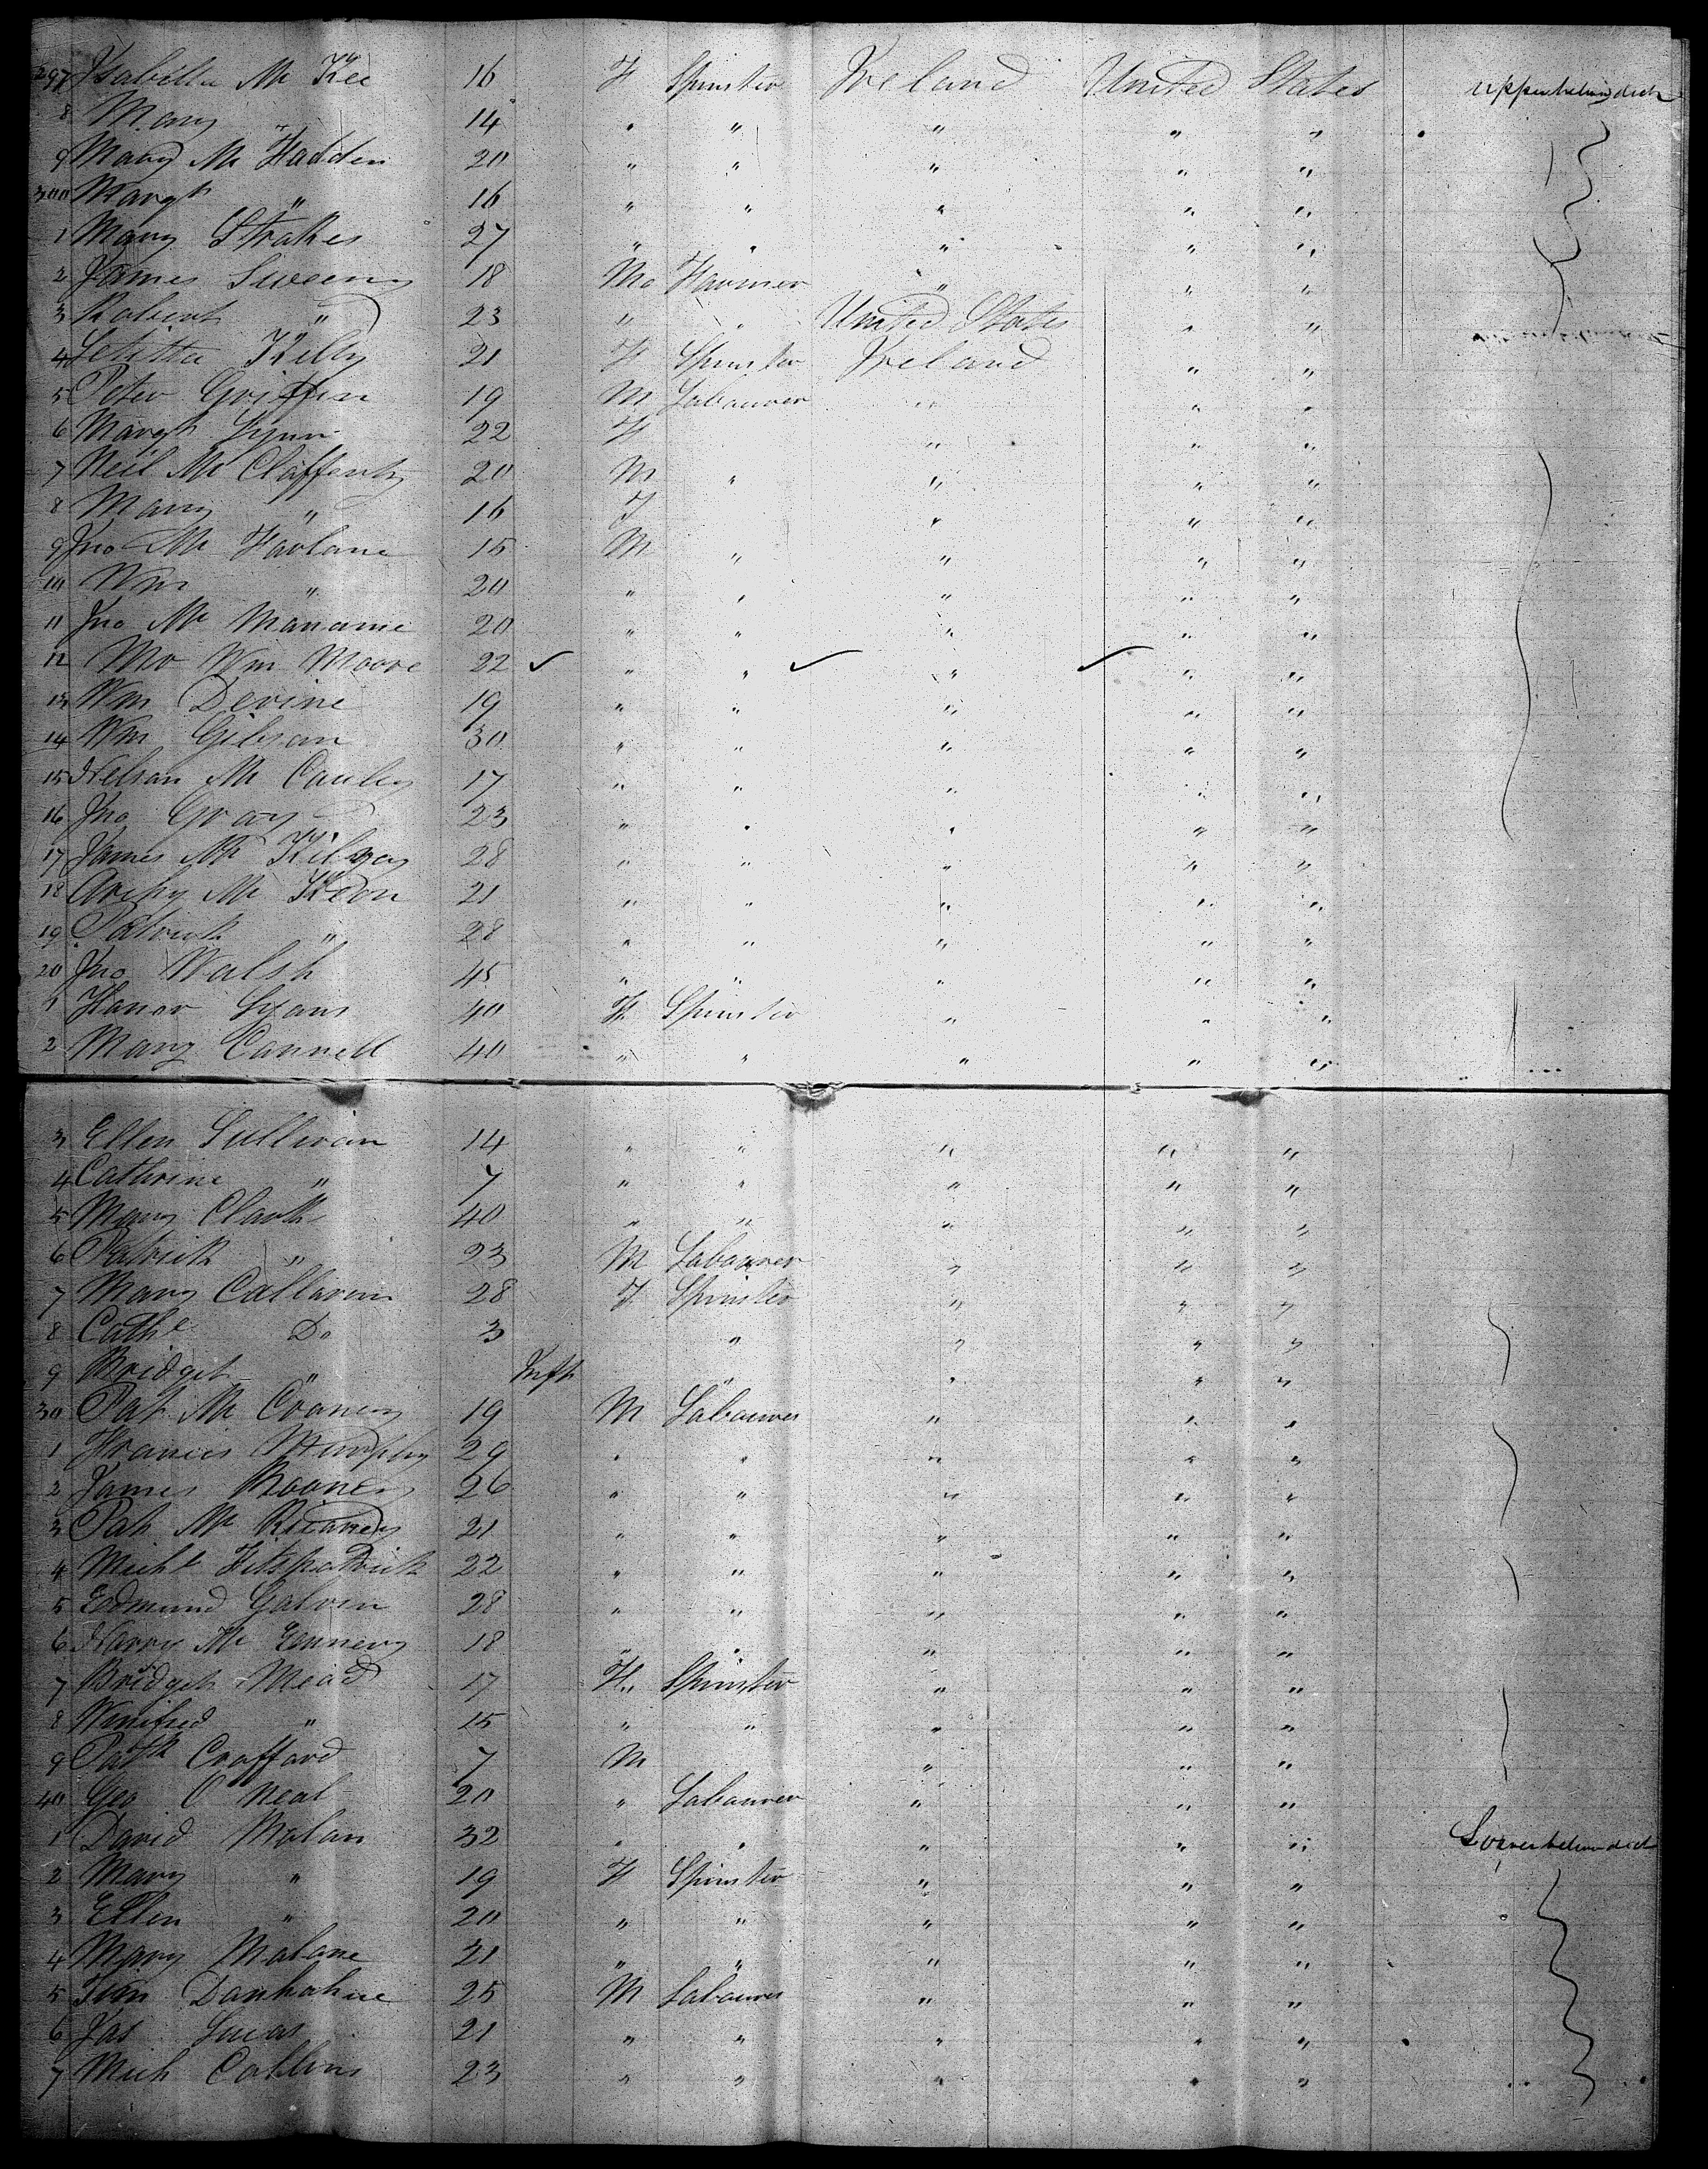 297 Isabella Mc Kee 16 F Spinster Ireland United States upper between deck
8 Mary " 14 " " " " "
9 Mary Mc Fadden 20 " " " " "
300 Margt " 16 " " " " "
1 Mary Strakes 27 " " " " "
2 James Sweeny 18 Ma Farmer " " "
3 Robert " 23 " " United States " "
4 Letitta Kelly 21 F Spinster Ireland " "
5 Peter Griffin 19 M Labourer " " "
6 Margt Lynn 22 F " " "
7 Neil Mc Clafferty 20 M " " " "
8 Mary " 16 F " " "
9 Jno Mc Farlane 15 M " " " "
10 Wm " 20 " " " " "
11 Jno Mc Manamie 20 " " " " "
12 Mr Wm Moore 22 ✓ " " ✓ " ✓ " "
13 Wm Devine 19 " " " " "
14 Wm Gibson 30 " " " " "
15 Nelson Mc Cauley 17 " " " " "
16 Jno Gray 23 " " " " "
17 James Mc Kilvay 28 " " " " "
18 Archy Mc Keon 21 " " " " "
19 Patrick " 28 " " " " "
20 Jno Walsh 45 " " " " "
1 Honor Lyons 40 F Spinster " " "
2 Mary Connell 40 " " " " "
3 Ellen Sullivan 14 " " " " "
4 Cathrine " 7 " " " " "
5 Mary Clark 40 " " " " "
6 Patrick " 23 M Labourer " " "
7 Mary Callaran 28 F Spinster " " "
8 Cathe Do 3 " " " "
9 Bridget " Inft " " " "
30 Pat Mc Craney 19 M Labourer " " "
1 Francis Murphy 29 " " " " "
2 James Rooney 26 " " " " "
3 Pat Mc 21 " " " " "
4 Michl Fitspatrick 22 " " " " "
5 Edmund Galvin 28 " " " " "
6 Harry Mc Ennery 18 " " " " "
7 Bridget Mead 17 F " Spinster " " "
8 Winifred " 15 " " " " "
9 Patk Craffard 7 M " " "
40 Geo O Neal 20 " Labourer " " "
1 David Molan 32 " " " " " Lower between deck
2 Mary " 19 F Spinster " " "
3 Ellen " 20 " " " " "
4 Mary Malone 21 " " " " "
5 Tim Danhahue 25 M Labourer " " "
6 Jas Lucas 21 " " " " "
7 Mich Collins 23 " " " " "